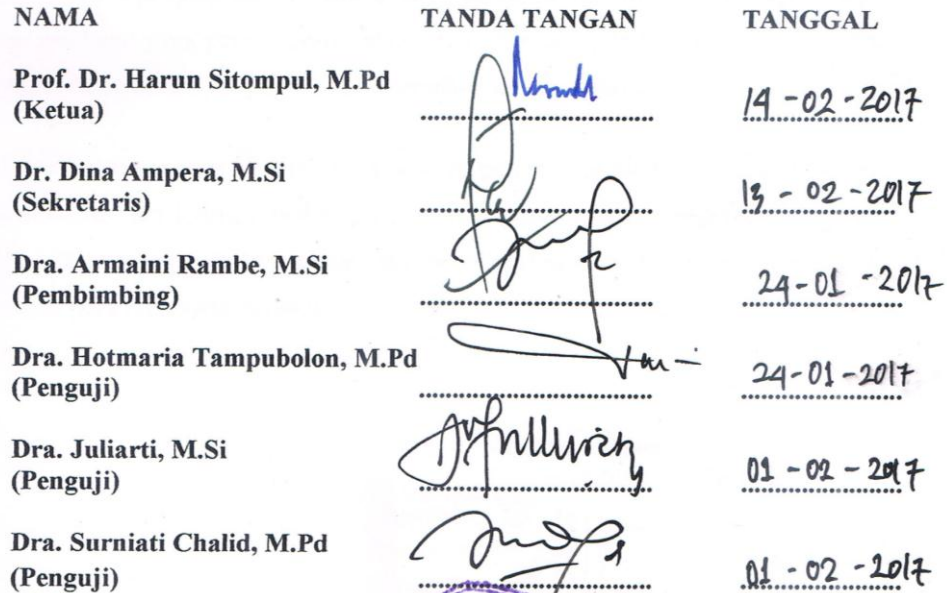 NAMA TANDA TANGAN TANGGAL
Prof. Dr. Harun Sitompul, M.Pd
(Ketua) 14-02-2017
Dr. Dina Ampera, M.Si
(Sekretaris) 13-02-2017
Dra. Armaini Rambe, M.Si
(Pembimbing) 24-01-2017
Dra. Hotmaria Tampubolon, M.Pd
(Penguji) 24-01-2017
Dra. Juliarti, M.Si
(Penguji) 01-02-2017
Dra. Surniati Chalid, M.Pd
(Penguji) 01-02-2017